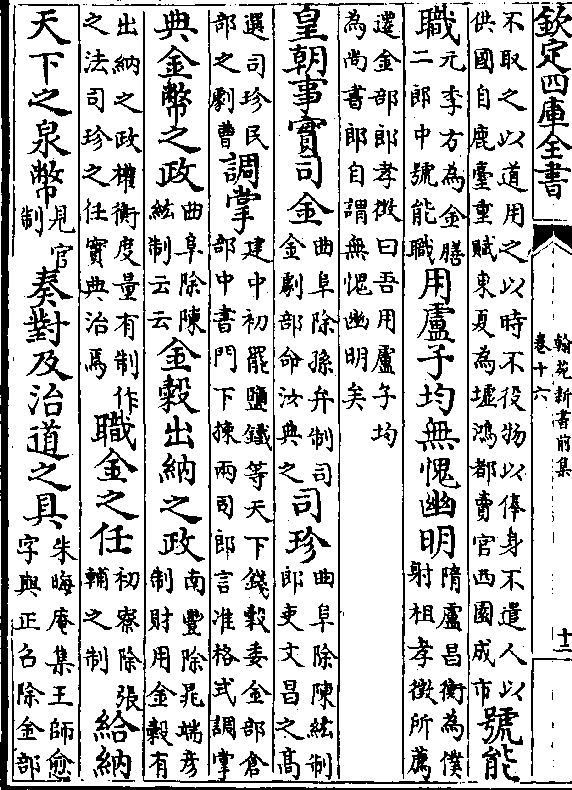 欽定四庫全書
翰苑新書前集
卷十六
十二
不取之以道用之以時不役物以俸身不遣人以
供國自鹿臺重賦東夏為墟鴻都賣官西園成市
號能
職
元李方為金膳
二郎中號能職
用盧子均無愧幽明
隋盧昌衡為僕
射祖孝徵所薦
遷金部郎孝徵曰吾用盧子均
為尚書郎自謂無愧幽明矣
皇朝事實司金
曲阜除孫弁制司
金劇部命法典之
司珍
曲阜除陳紘制
郎吏文昌之高
選司珍民
部之劇曹
調掌
建中初罷鹽鐵等天下錢穀委金部倉
部中書門下揀兩司郎言准格式調掌
典金幣之政
曲阜除陳
紘制云云
金穀出納之政
南豐除晁端彥
制財用金穀有
出納之政權衡度量有制作
之法司珍之任實典治焉
職金之任
初寮除張
輔之制
給納
天下之泉幣
見官
制
奏對及治道之具
朱晦庵集王師愈
字與正召除金部